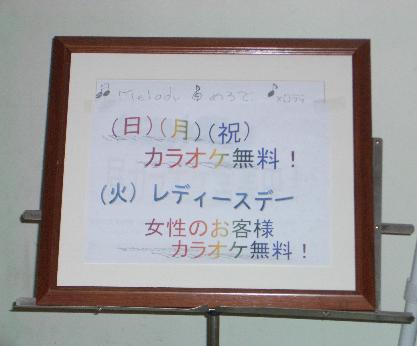 Melody めろでぃ メロディ
(日)(月)(祝)
カラオケ無料！
(火) レディースデー
女性のお客様
カラオケ無料！